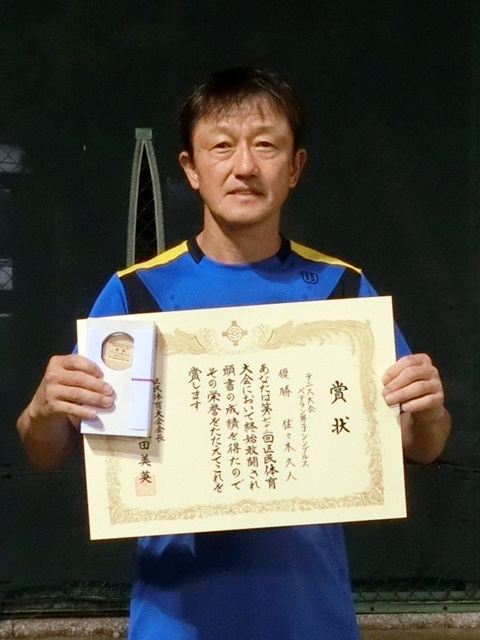 賞状
テニス大会
ベテラン男子シングルス
優勝 佐々木久人
あなたは第七十二回区民体育
大会において終始敢闘され
頭書の成績を得たので
その栄誉をたたえてこれを
賞します
区民体育大会会長
田美英